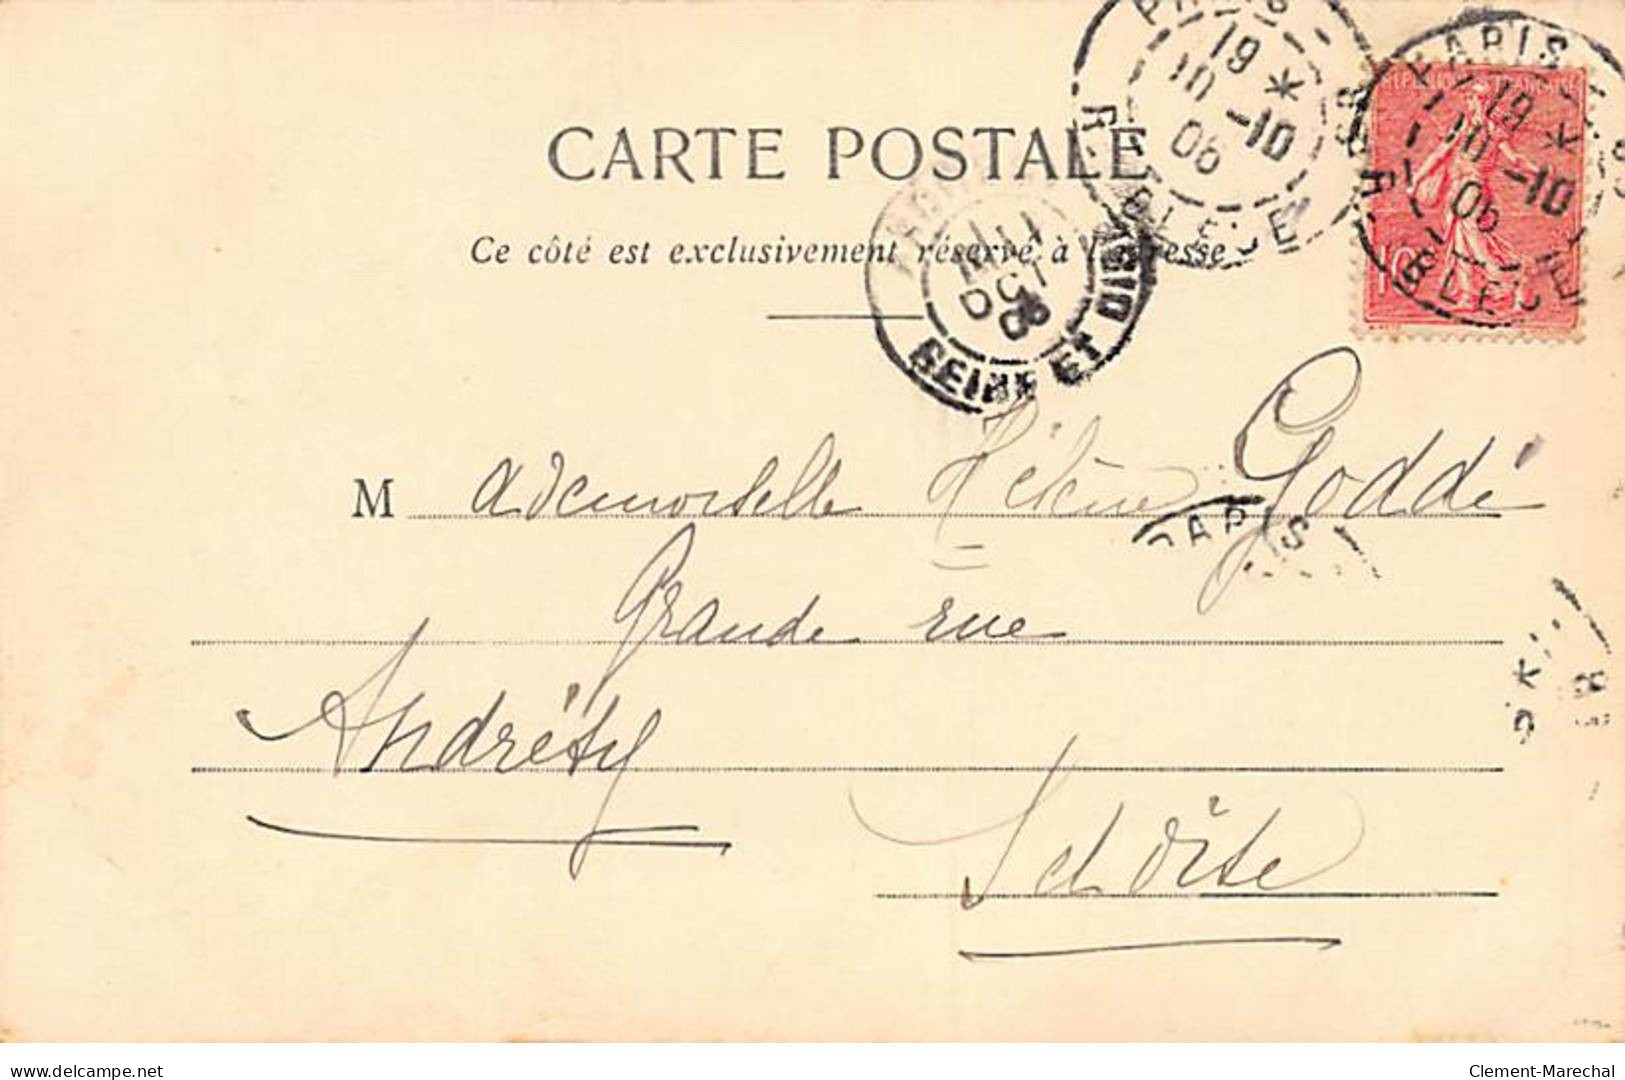 PARIS
19 *
10 -10
06
R. BLEUE
PARIS
19 *
10 -10
06
R. BLEUE
10
CARTE POSTALE
Ce côté est exclusivement réservé à l'adresse
SEINE ET OISE
M ademoiselle Hélène Goddé
PARIS
Grande rue
Andrésy
S et Oise
delcampe.net
Clement-Marechal